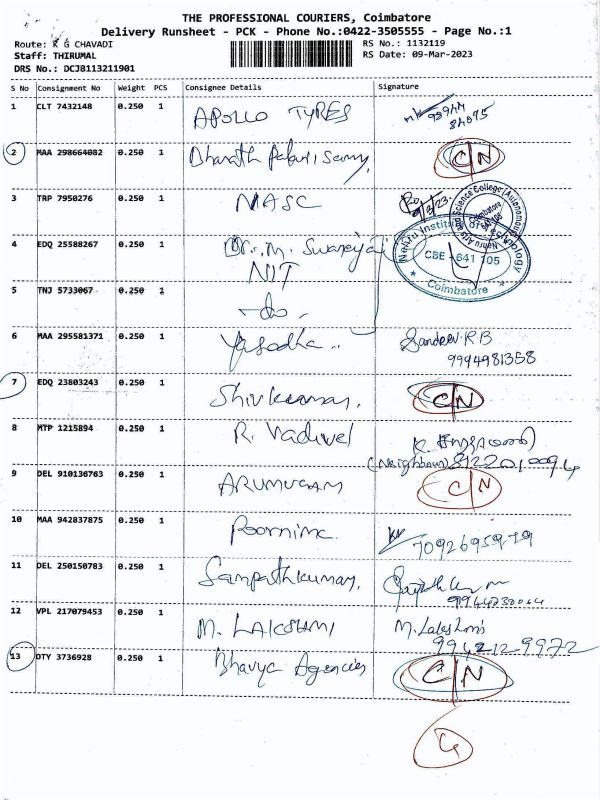 THE PROFESSIONAL COURIERS, Coimbatore
Delivery Runsheet - PCK - Phone No.:0422-3505555 - Page No.:1
Route: K G CHAVADI
RS No.: 1132119
Staff: THIRUMAL
RS Date: 09-Mar-2023
DRS No.: DCJ8113211901
S No Consignment No Weight PCS Consignee Details Signature
1 CLT 7432148 0.250 1 APOLLO TYRES
2 MAA 298664082 0.250 1 Bharath C/N
3 TRP 7950276 0.250 1 NASC 9/3/23
Nehru Arts and Science College (Autonomous)
Coimbatore
4 EDQ 25588267 0.250 1 Dr. M.
NIT
Nehru Institute of Technology
CBE - 641 105
Coimbatore
5 TNJ 5733067 0.250 1 -do-
6 MAA 295581371 0.250 1 Yasodha .. Sandeev.R.B
9994981358
7 EDQ 23803243 0.250 1 Shivkumar, C/N
8 MTP 1215894 0.250 1 R. Vadivel
(Neighbour)
9 DEL 910136763 0.250 1 ARUMUGAM C/N
10 MAA 942837875 0.250 1 Poornima 7092695979
11 DEL 250150783 0.250 1 Sampathkumar,
12 VPL 217079453 0.250 1 M. LAKSHMI M. Lakshmi
9942129972
13 DTY 3736928 0.250 1 Bhavya Agencies C/N